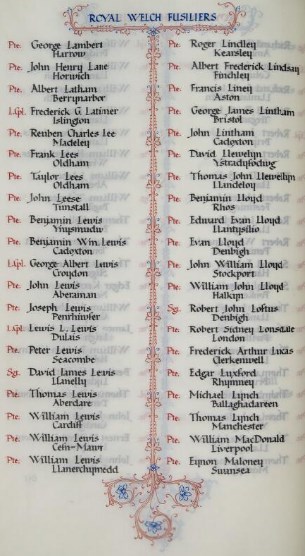 ROYAL WELCH FUSILIERS
Pte. George Lambert
Harrow
Pte. John Henry Lane
Horwich
Pte. Albert Latham
Berrynarbor
L.Cpl. Frederick G. Latimer
Islington
Pte. Reuben Charles Lee
Madeley
Pte. Frank Lees
Oldham
Pte. Taylor Lees
Oldham
Pte. John Leese
Tunstall
Pte. Benjamin Lewis
Pte. Benjamin Wm. Lewis
Cadoxton
L.Cpl. George Albert Lewis
Croydon
Pte. John Lewis
Aberaman
Pte. Joseph Lewis
Penrhiwfer
L.Cpl. Lewis L. Lewis
Dulais
Pte. Peter Lewis
Seacombe
Sg. David James Lewis
Llanelly
Pte. Thomas Lewis
Aberdare
Pte. William Lewis
Cardiff
Pte. William Lewis
Cefn-Mawr
Pte. William Lewis
Llanerchymedd
Pte. Roger Lindley
Kearsley
Pte. Albert Frederick Lindsay
Finchley
Pte. Francis Liney
Aston
Pte. George James Lintham
Bristol
Pte. John Lintham
Cadoxton
Pte. David Llewellyn
Ystradyfodwg
Pte. Thomas John Llewellyn
Llandeloy
Pte. Benjamin Lloyd
Rhos
Pte. Edward Evan Lloyd
Llantysilio
Pte. Evan Lloyd
Denbigh
Pte. John William Lloyd
Stockport
Pte. William John Lloyd
Halkyn
Sg. Robert John Loftus
Denbigh
Pte. Robert Sidney Lonsdale
London
Pte. Frederick Arthur Lucas
Clerkenwell
Pte. Edgar Luxford
Rhymney
Pte. Michael Lynch
Ballaghadareen
Pte. Thomas Lynch
Manchester
Pte. William MacDonald
Liverpool
Pte. Eynon Maloney
Swansea